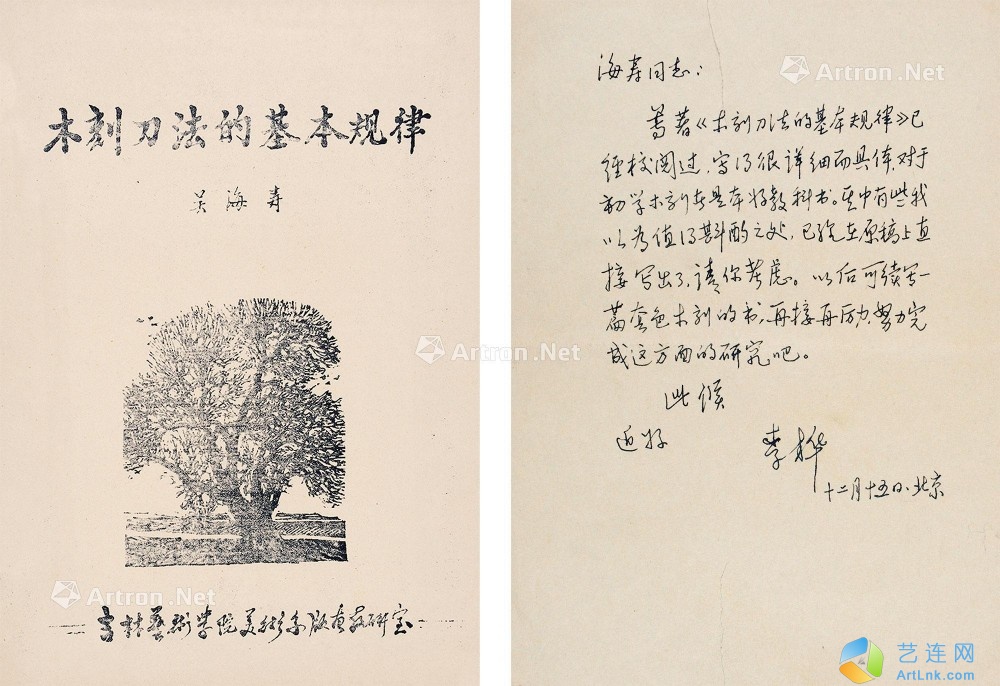 木刻刀法的基本规律
吴海寿
吉林艺术学院美术系版画教研室
海寿同志：
尊著《木刻刀法的基本规律》已
经校阅过，写得很详细而具体，对于
初学木刻者是本好教科书。其中有些我
以为值得斟酌之处，已经在原稿上直
接写出了，请你考虑。以后可续写一
篇套色木刻的书，再接再厉，努力完
成这方面的研究吧。
此候
近好
李桦
十二月十五日·北京
Artron.Net
Artron.Net
Artron.Net
Artron.Net
艺连网
ArtLnk.com